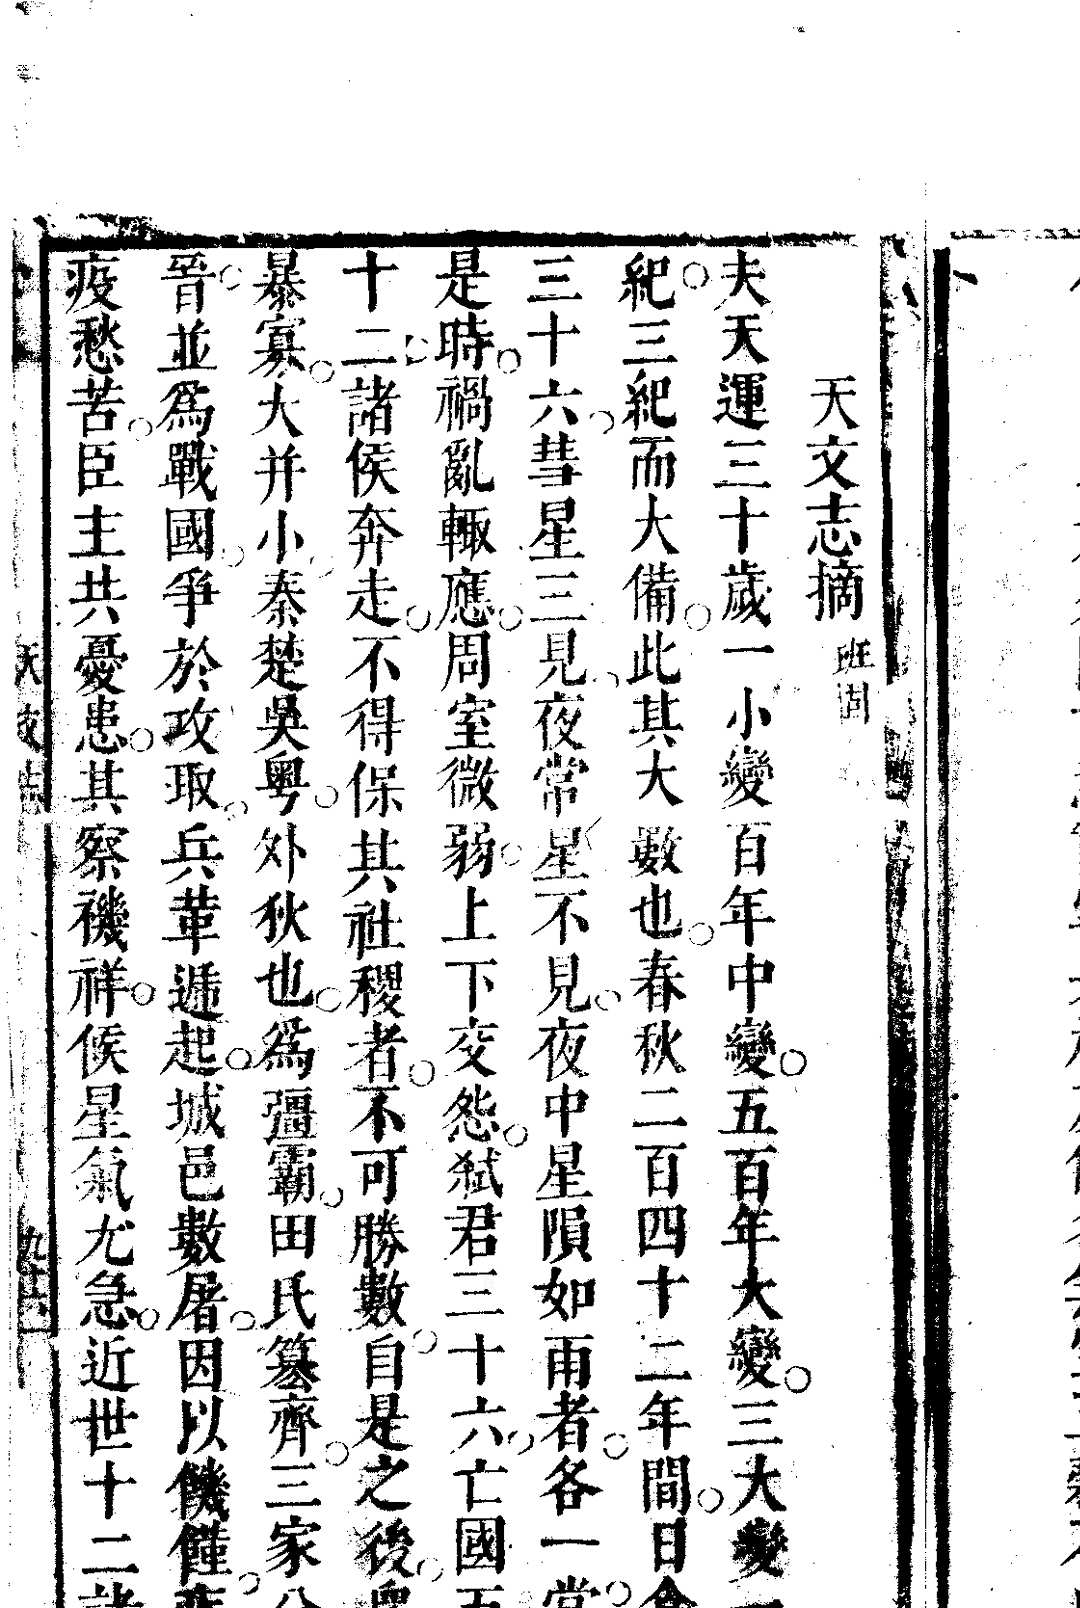 天文志摘 班固
夫天運三十歲一小變百年中變五百年大變三大變一
紀三紀而大備此其大數也春秋二百四十二年間日食
三十六彗星三見夜常星不見夜中星隕如雨者各一當
是時禍亂輙應周室微弱上下交怨弑君三十六亡國五
十二諸侯奔走不得保其社稷者不可勝數自是之後眾
暴寡大并小秦楚吳粤外狄也爲彊霸田氏簒齊三家分
晉並爲戰國爭於攻取兵革遞起城邑數屠因以饑饉疾
疫愁苦臣主共憂患其察禨祥候星氣尤急近世十二諸